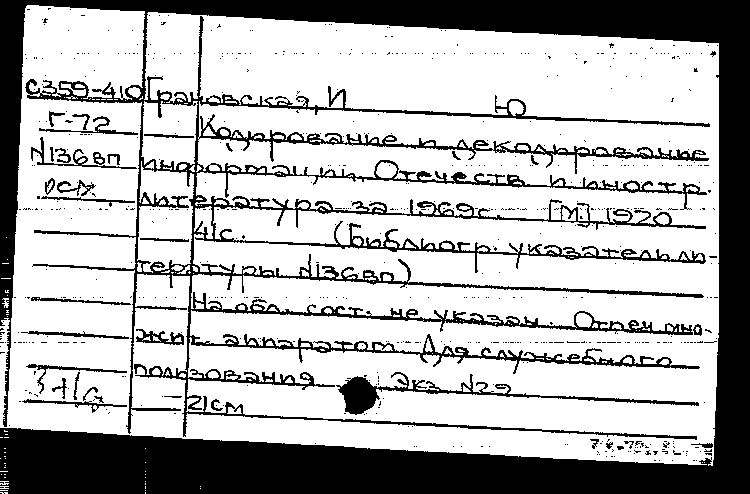 С359-410 Грановская, И Ю
Г-72 Кодирование и декодирование
N136вп информации. Отечеств и иностр.
осх. литература за 1969г. [М], 1970
41с. (Библиогр. указатель ли-
тературы N136вп)
На обл. сост. не указан. Отпеч мно-
жит. аппаратом Для служебного
пользования Экз N29
21см